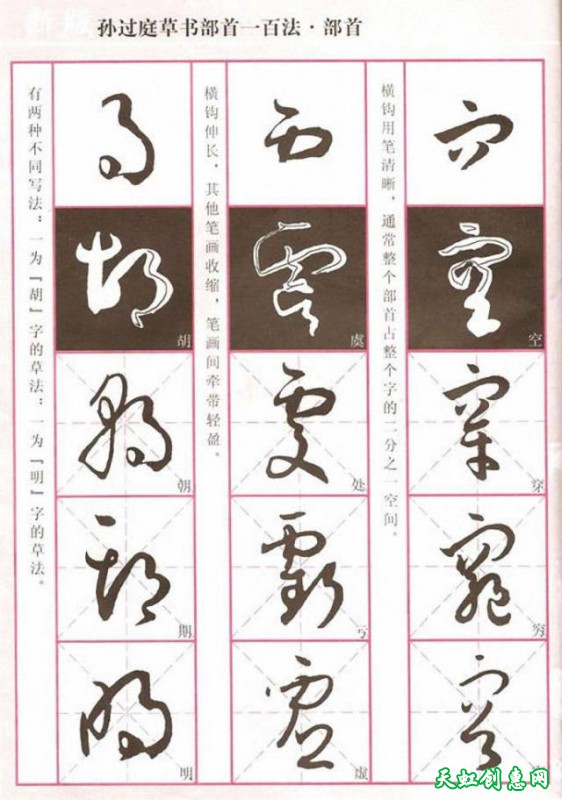 孙过庭草书部首一百法·部首
横钩用笔清晰，通常整个部首占整个字的二分之一空间。
空
穿
穷
横钩伸长，其他笔画收缩，笔画间牵带轻盈。
虞
处
亏
虚
有两种不同写法：一为『胡』字的草法；一为『明』字的草法。
胡
朝
期
明
天虹创意网